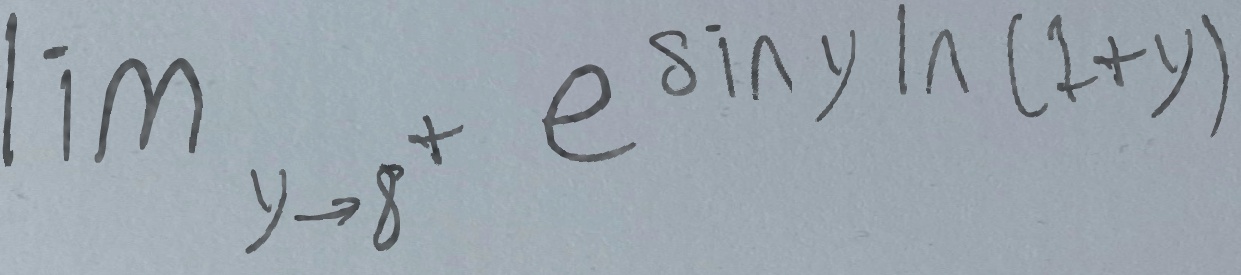 lim y→8⁺ e^{sin y ln (1+y)}